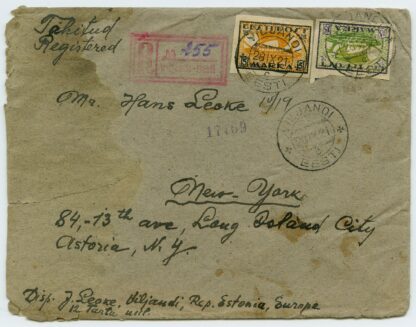 Tähitud
Registered
R 255
EESTI POST
MARKA
VILJANDI
28 IX 21
Mr. Hans Leoke 10/19
17769
VILJANDI
EESTI
New-York
84,-13th ave, Long Island City
Astoria, N.Y.
Disp. J. Leoke, Viljandi, Rep. Estonia, Europa
12 Tartu